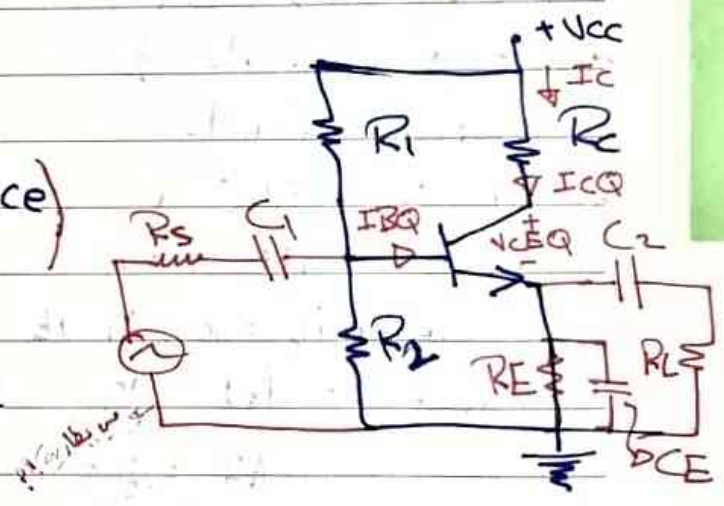 + VCC
IC
R1
RC
ce)
ICQ
RS
C1
IBQ
+
VCEQ
-
C2
R2
RE
RL
CE